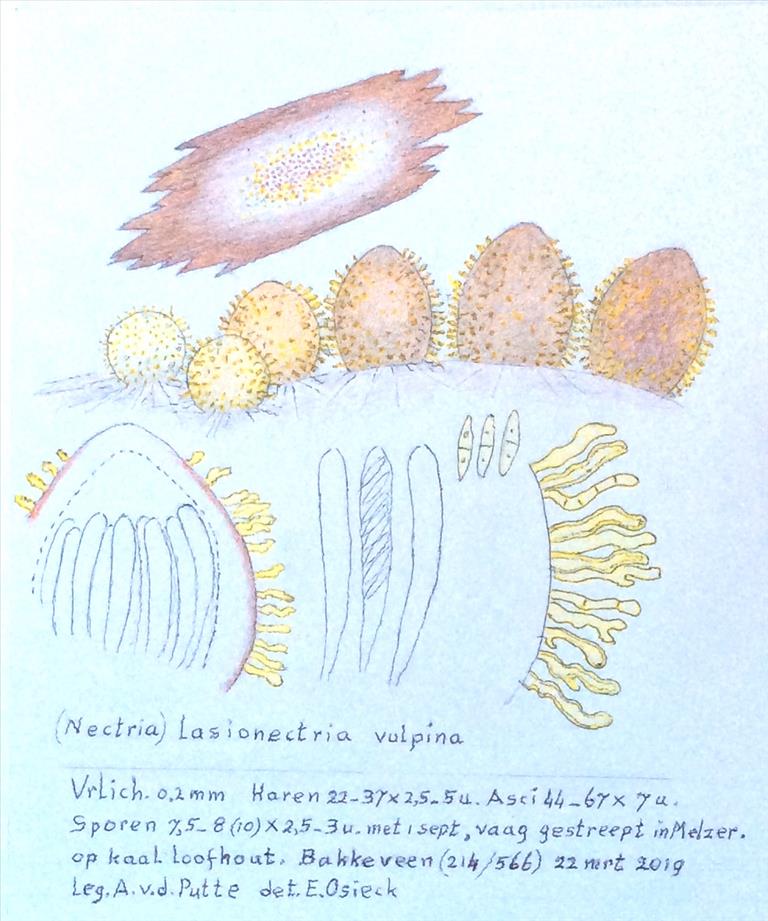 (Nectria) Lasionectria vulpina
Vrlich. 0,2mm Haren 22-37x2,5-5u. Asci 44-67x 7u.
Sporen 7,5-8(10)x2,5-3u. met 1 sept, vaag gestreept in Melzer.
op kaal loofhout. Bakkeveen (214/566) 22 mrt 2019
Leg. A.v.d. Putte det. E.Osieck